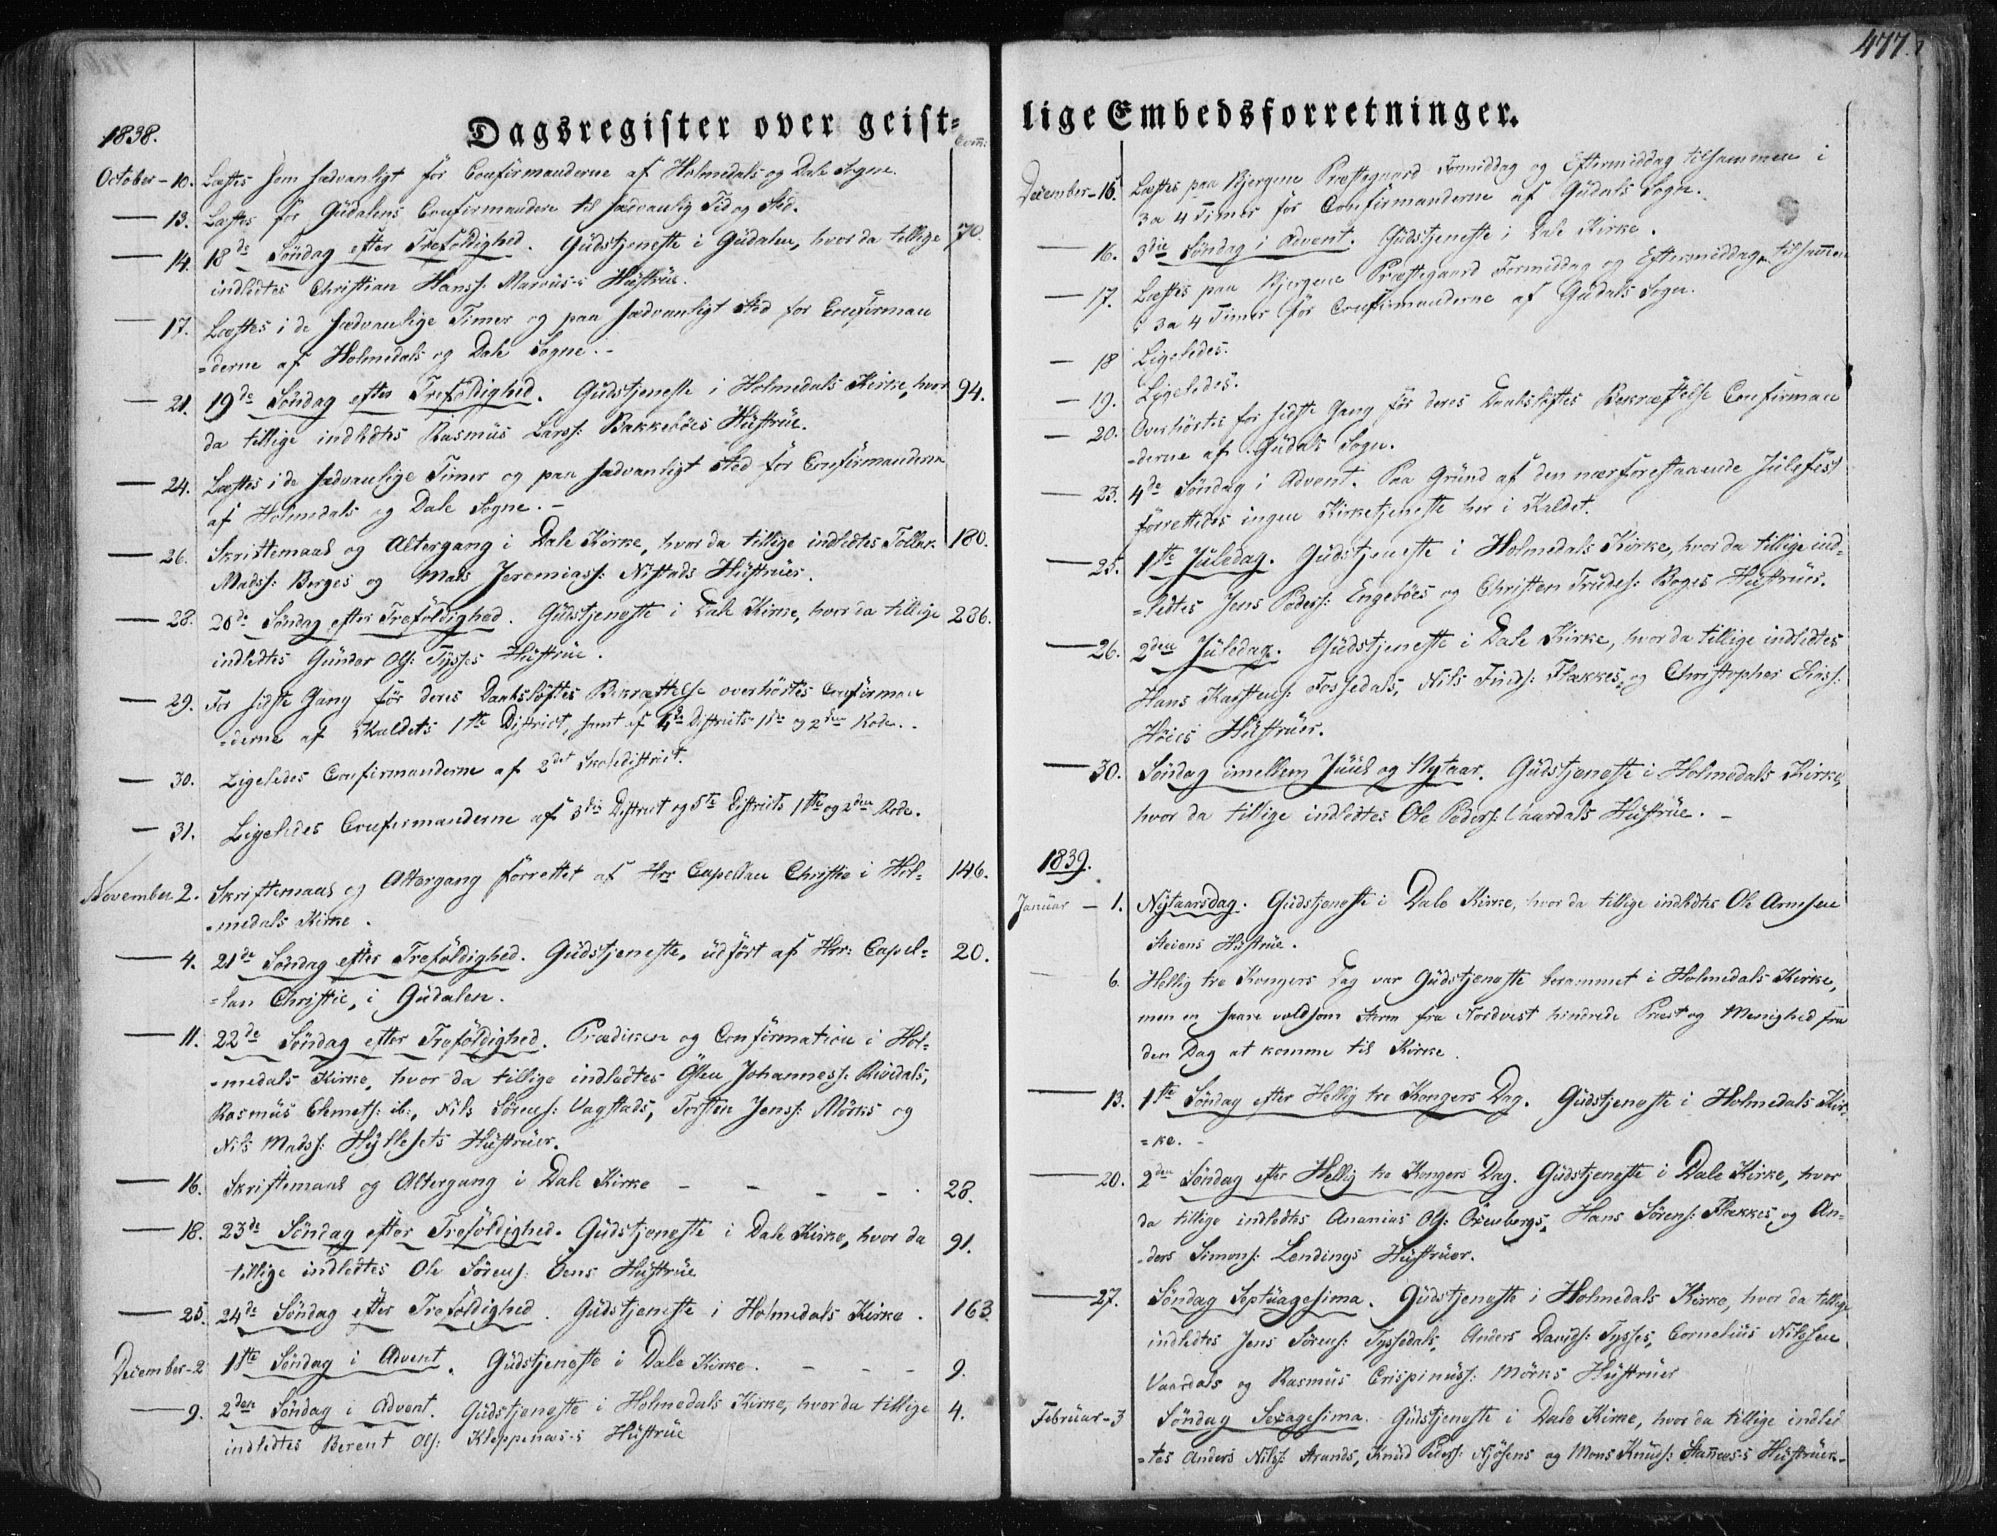 477.
Dagsregister over geist=
lige Embedsforretninger.
1838.
Com:
October - 10. Læstes som sædvanligt för Confirmanderne af Holmedals og Dale Sogne.
— 13. Læstes för Güdalens Confirmandere til sædvanlig Tid og Sted.
— 14. 18de Söndag efter Trefoldighed. Güdstjeneste i Güdalen, hvor da tillige 70.
indledtes Christian Hanss: Marüus-s Hüstrüe.
— 17. Læstes i de sædvanlige Timer og paa sædvanligt Sted for Confirman
=derne af Holmedals og Dale Sogne. -
— 21. 19de Söndag efter Trefoldighed. Güdstjeneste i Holmedals Kirke, hvor 94.
da tillige indledtes Rasmüs Larss: Bakkeböes Hüstrüe.
— 24. Læstes i de sædvanlige Timer og paa sædvanligt Sted för Confirmanderne
af Holmedals og Dale Sogne. -
— 26. Skriftemaal og Altergang i Dale Kirke, hvor da tillige indledtes Tollak 180.
Madss: Berges og Mads Jeremiass: Nistads Hüstrüer.
— 28. 20de Söndag efter Trefoldighed. Güdstjeneste i Dale Kirke, hvor da tillige 236.
indledtes Gündar Ols: Tysses Hüstrüe.
— 29. For sidste Gang för deres Daabslöftes Bekræftelse overhörtes Confirman
=derne af Kaldets 1ste District, samt af 4de Districts 1ste og 2den Rode. -
— 30. Ligeledes Confirmanderne af 2det Skoledistrict.
— 31. Ligeledes Confirmanderne af 3die District og 5te Districts 1ste og 2den Rode.
November 2. Skriftemaal og Altergang forrettet af Hrr Capellan Christie i Hol= 146.
=medals Kirke.
— 4. 21de Söndag efter Trefoldighed. Güdstjeneste, üdfört af Hrr: Capel= 20.
=lan Christie, i Güdalen.
— 11. 22de Söndag efter Trefoldighed. Prædiken og Confirmation i Hol=
=medals Kirke, hvor da tillige indledtes Östen Johanness: Rividals,
Rasmüs Clemets: ib:, Nils Sörens: Vagstads, Torsten Jenss: Mörks og
Nils Madss: Hyllesets Hüstrüer.
— 16. Skriftemaal og Altergang i Dale Kirke - - - - . 28.
— 18. 23de Söndag efter Trefoldighed. Güdstjeneste i Dale Kirke, hvor da 91.
tillige indledtes Ole Sörens: Oens Hüstrüe
— 25. 24de Söndag efter Trefoldighed. Güdstjeneste i Holmedals Kirke. 163
December - 2 1ste Söndag i Advent. Güdstjeneste i Dale Kirke. - - - 9.
— 9. 2den Söndag i Advent. Güdstjeneste i Holmedals Kirke, hvor da tillige 4.
indledtes Berent Ols: Kleppenæs-s Hüstrüe
December - 15. Læstes paa Bjergene Præstegaard Formiddag og Eftermiddag tilsammen i
3 a 4 Timer för Confirmanderne af Güdals Sogn.
— 16. 3die Söndag i Advent. Güdstjeneste i Dale Kirke.
— 17. Læstes paa Bjergene Præstegaard Formiddag og Eftermiddag tilsamen
i 3 a 4 Timer för Confirmanderne af Güdals Sogn.
— 18 Ligeledes.
— 19. Ligeledes.
— 20. Overhörtes for sidste Gang för deres Daabslöftes Bekræftelse Confirman
=derne af Güdals Sogn.
— 23. 4de Söndag i Advent. Paa Gründ af den nærforestaaende Julefest
forrettedes ingen Kirketjeneste her i Kaldet.
— 25. 1ste Jüledag. Güdstjeneste i Holmedals Kirke, hvor da tillige ind=
=ledtes Jens Peders: Engeböes og Christen Trüdes: Boges Hüstrüer.
— 26. 2den Jüledag. Güdstjeneste i Dale Kirke, hvor da tillige indledtes
Hans Karstens: Fossedals, Nils Finds: Flekkes, og Christopher Eliass:
Höies Hüstrüer.
— 30. Söndag imellem Jüül og Nytaar. Güdstjeneste i Holmedals Kirke,
hvor da tillige indledtes Ole Peders: Vaardals Hüstrüe. -
1839.
Januar - 1. Nytaarsdag. Güdstjeneste i Dale Kirke, hvor da tillige indledtes Ole Arnesen
Steiens Hüstrüe.
6. Hellig tre Kongers Dag var Güdstjeneste berammet i Holmedals Kirke,
men en saare voldsom Storm fra Nordvest hindrede Præst og Menighed fra
den Dag at komme til Kirke.
— 13. 1ste Söndag efter Hellig tre Kongers Dag. Güdstjeneste i Holmedals Kir-
=ke. -
— 20. 2den Söndag efter Hellig tre Kongers Dag. Güdstjeneste i Dale Kirke, hvor
da tillige indledtes Ananias Ols: Öxenbergs, Hans Sörens: Flekkes, og An-
=ders Simons: Lendings Hüstrüer.
— 27. Söndag Septüagesima. Güdstjeneste i Holmedals Kirke, hvor da tillige
indledtes Jens Sörens: Tyssedals, Anders Davids: Tysses, Cornelius Nilssen
Vaardals og Rasmüs Crispinüss: Mörks Hüstrüer
Februar - 3 Söndag Sexagesima. Güdstjeneste i Dale Kirke, hvor da tillige indled
=tes Anders Nilss: Strands, Knüd Peders: Njösens og Mons Knüds: Stanæs-s Hüstrüer. -